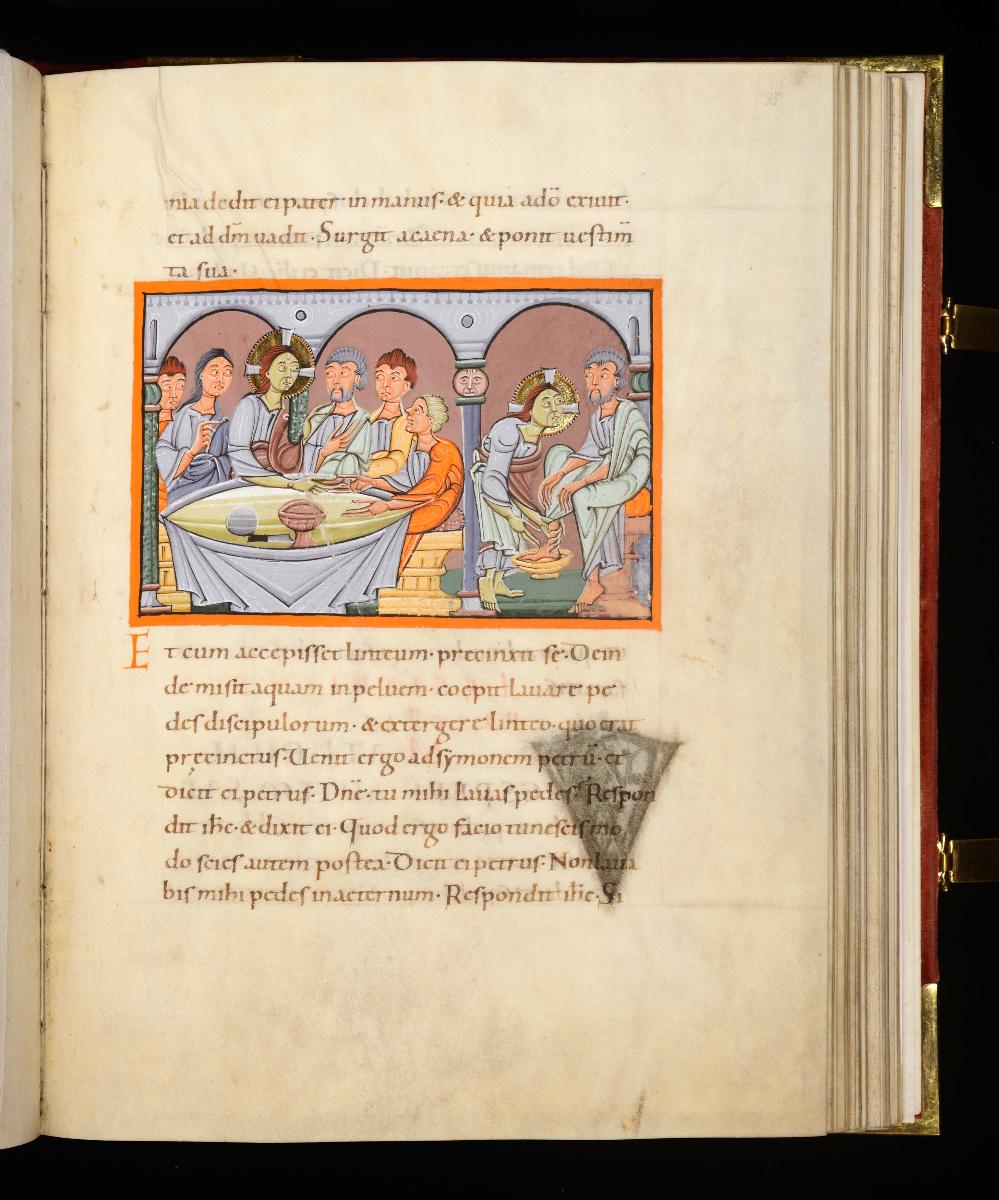 35
nia dedit ei pater in manus· & quia a dō exiuit·
et ad dm̄ uadit· Surgit a caena· & ponit uestim̄
ta sua·
Et cum accepisset linteum· precinxit se· Dein
de misit aquam in peluem· coepit lauare pe
des discipulorum· & extergere linteo· quo erat
pręcinctus· Uenit ergo ad symonem petrū· et
dicit ei petrus· Dn̄e· tu mihi lauas pedes· Respon
dit ih̄c· & dixit ei· Quod ergo facio tu nescis mo
do scies autem postea· Dicit ei petrus· Non laua
bis mihi pedes in aeternum· Respondit ih̄c· Si